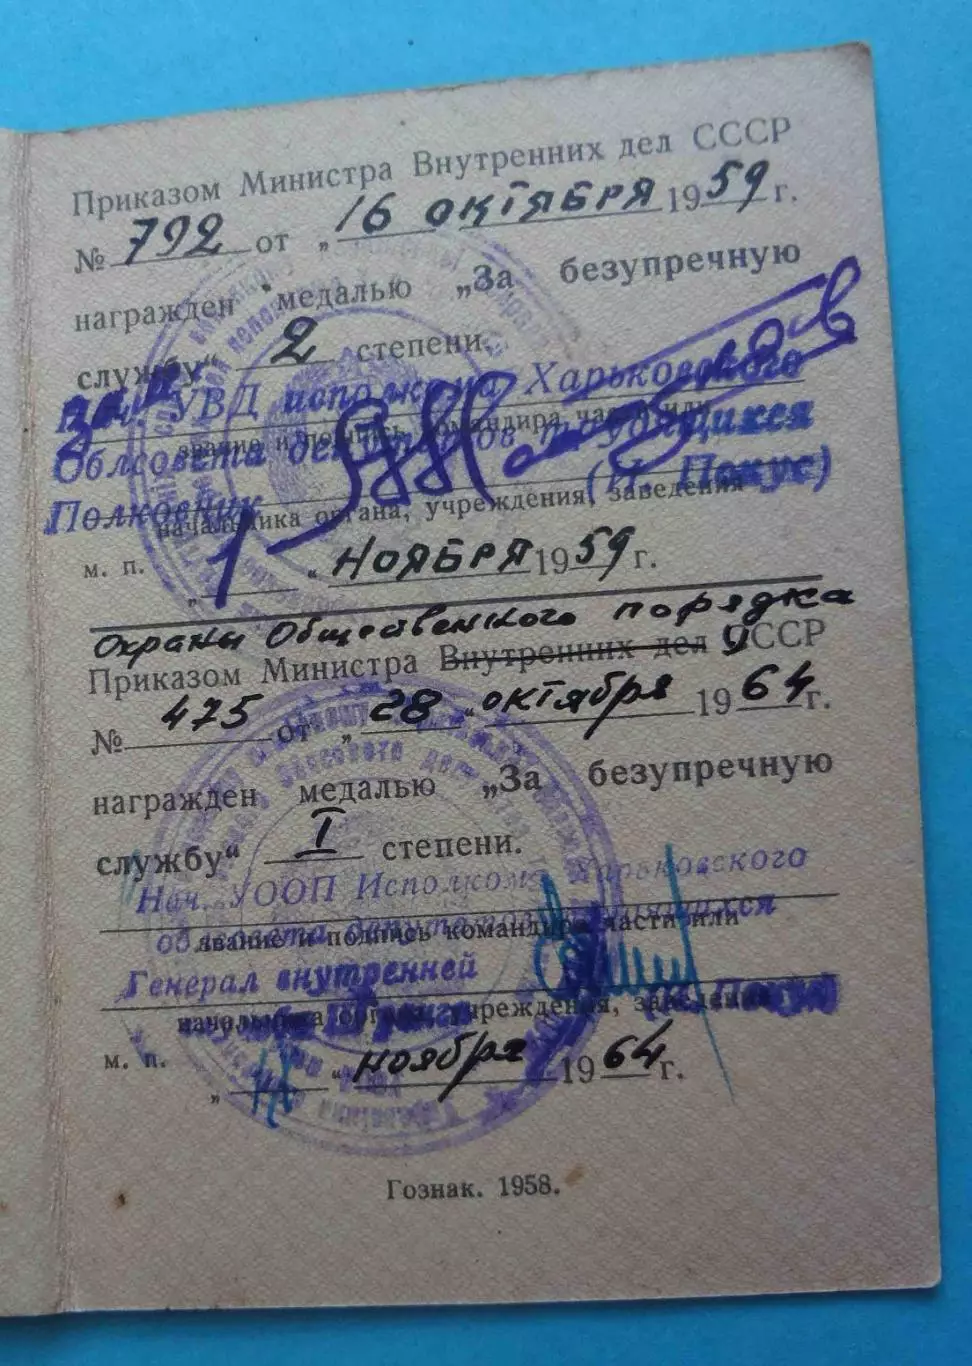 Приказом Министра Внутренних дел СССР
№ 792 от „ 16 ОКТЯБРЯ 1959 г.
награжден медалью „За безупречную
службу“ 2 степени.
Зам
Нач. УВД исполкома Харьковского
звание и подпись командира части или
Облсовета депутатов трудящихся
Полковник (Н. Покус)
начальника органа, учреждения, заведения
м. п. „ 1 “ НОЯБРЯ 1959 г.
Охраны Общественного порядка
Приказом Министра Внутренних дел СССР
№ 475 от „ 28 “ октября 1964 г.
награжден медалью „За безупречную
службу“ I степени.
Нач. УООП Исполкома Харьковского
облсовета депутатов трудящихся
звание и подпись командира части или
Генерал внутренней
службы Покус
начальника органа, учреждения, заведения
м. п. „ “ ноября 1964 г.
Гознак. 1958.